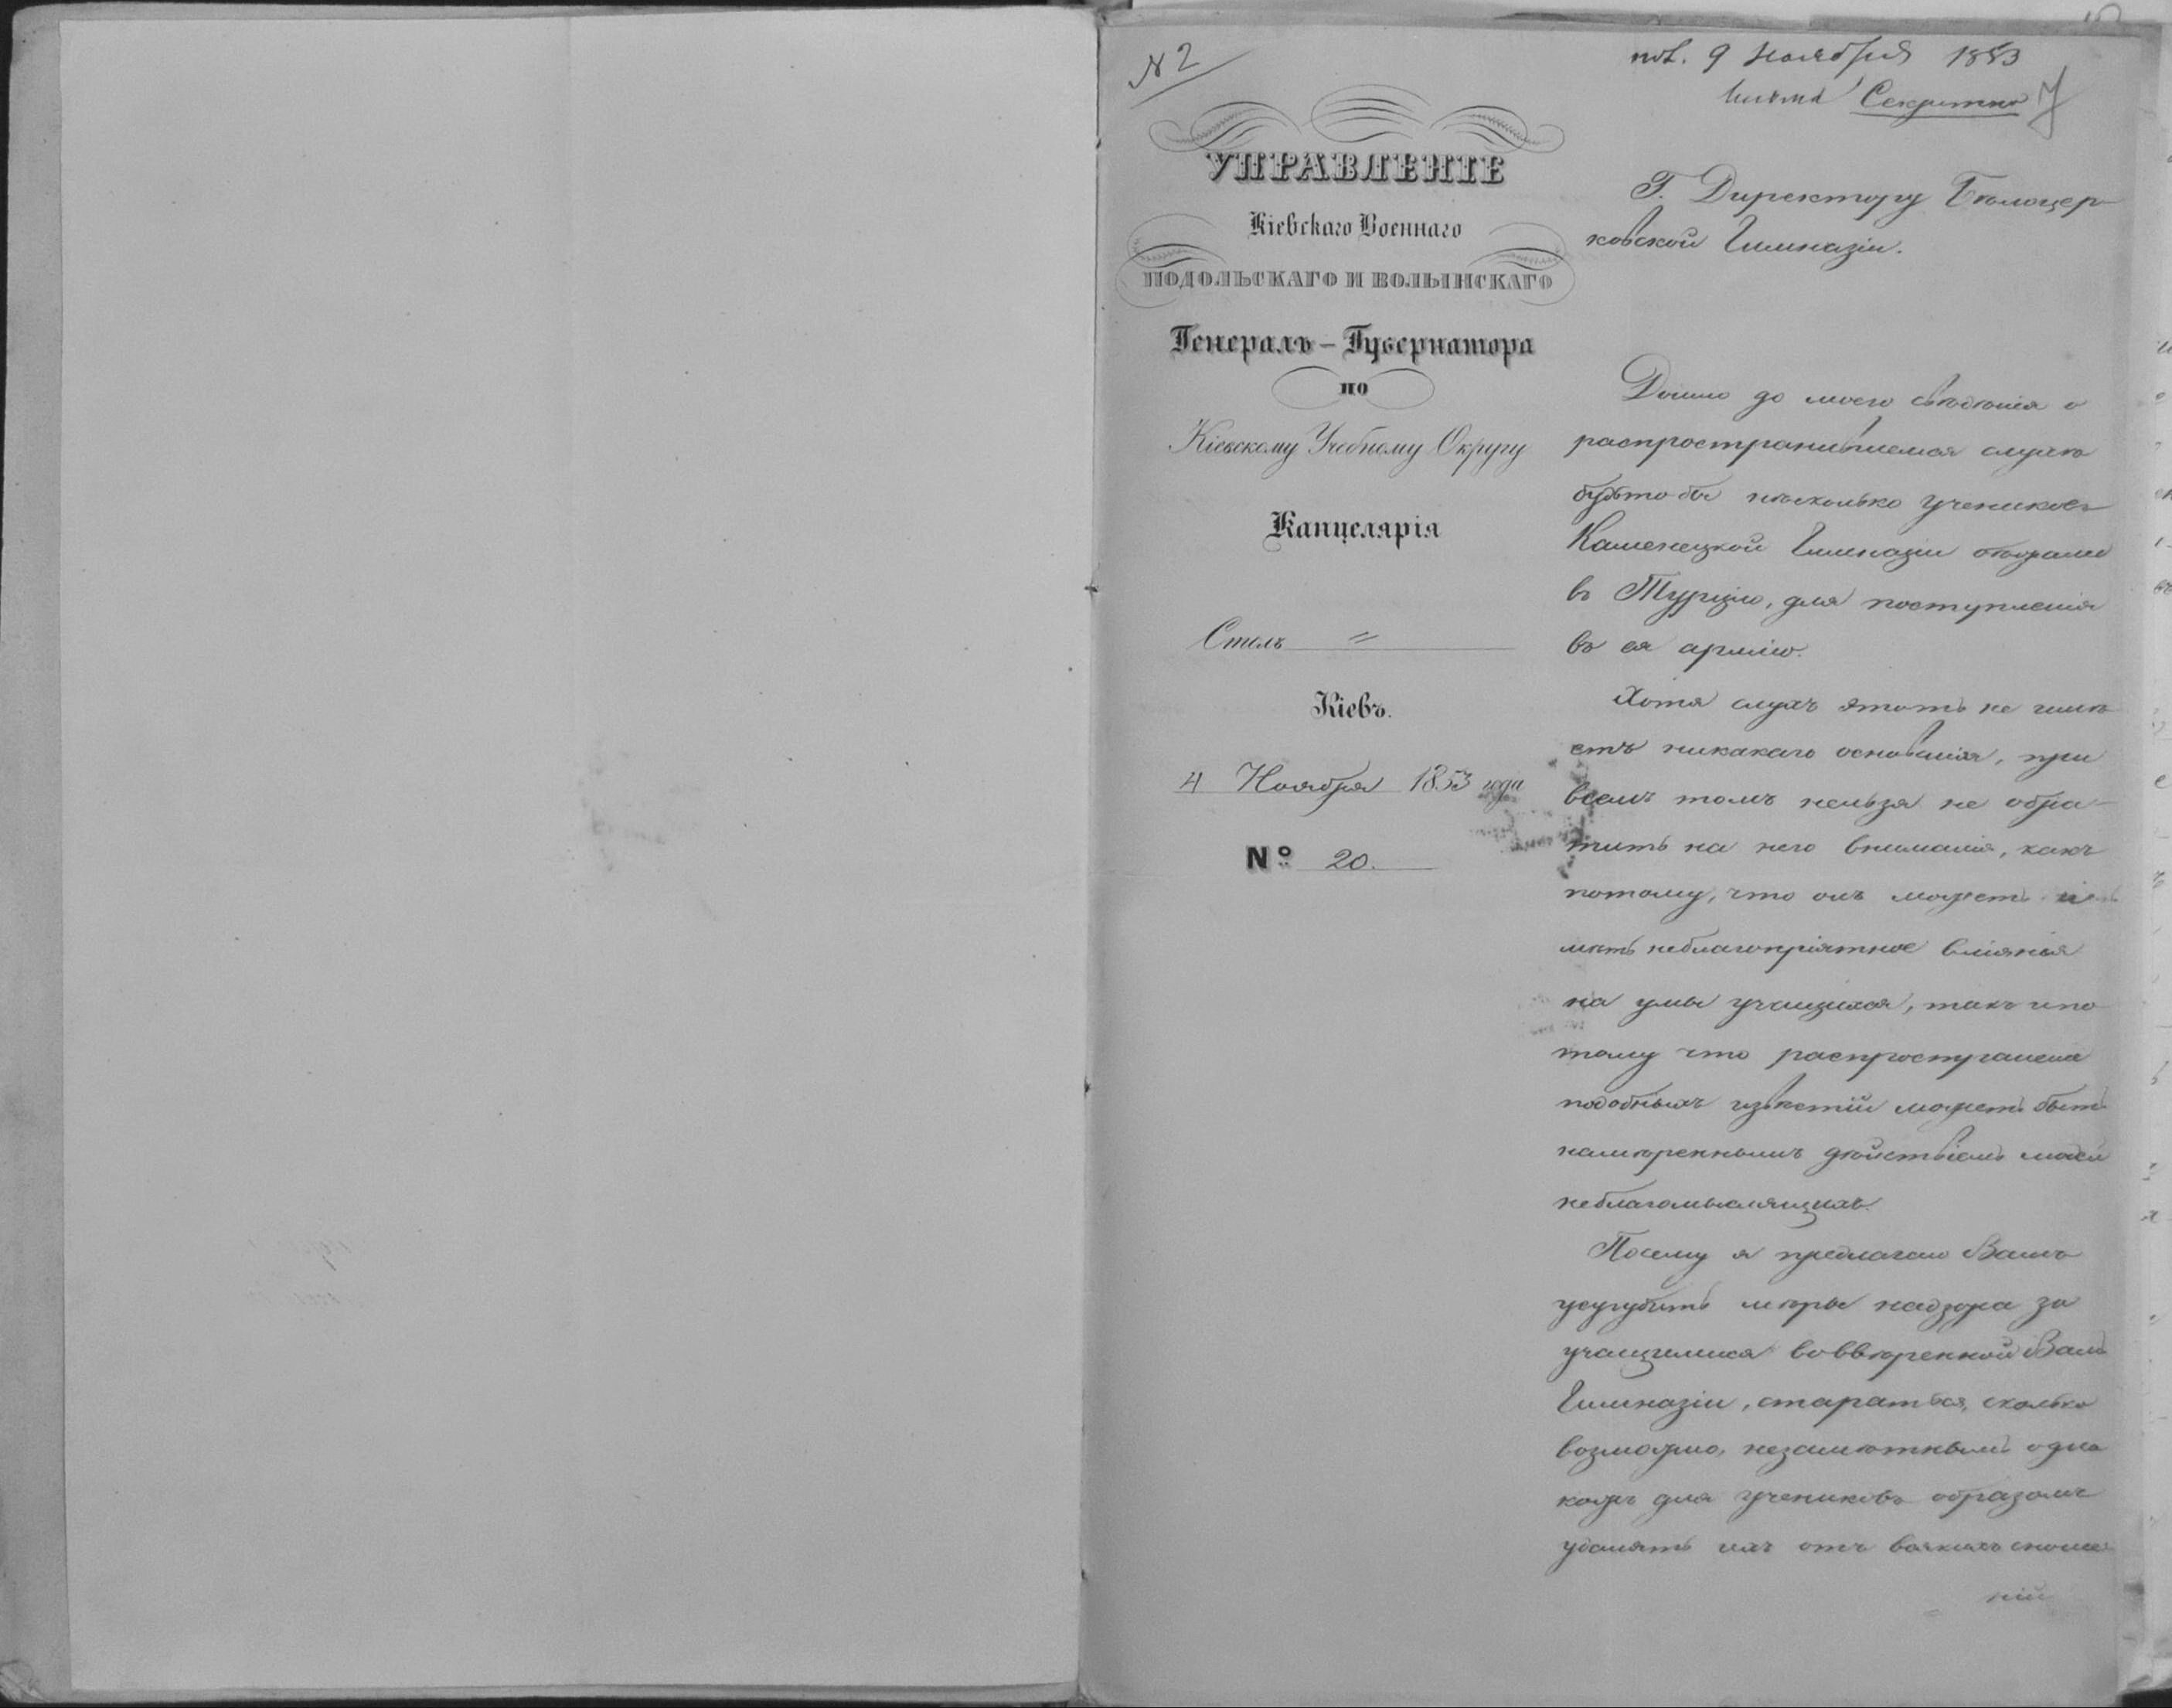 № 2
пол. 9 Ноября 1853
Секретно
УПРАВЛЕНІЕ
Кіевскаго Военнаго
ПОДОЛЬСКАГО И ВОЛЫНСКАГО
Генералъ-Губернатора
по
Кіевскому Учебному Округу
Канцелярія
Столъ "
Кіевъ.
4 Ноября 1853 года
№ 20.
Г. Директору Бѣлоцер-
ковской Гимназіи.
Дошло до моего свѣдѣнія о
распространившемся слухѣ
будто-бы нѣсколько учениковъ
Каменецкой Гимназіи бѣжали
въ Турцію, для поступленія
въ ея армію.
Хотя слухъ этотъ не имѣ
етъ никакаго основанія, при
всемъ томъ нельзя не обра-
тить на него вниманія, какъ
потому, что онъ можетъ и
мѣть неблагопріятное вліяніе
на умы учащихся, такъ и по
тому что распространеніе
подобныхъ извѣстій можетъ быть
намѣреннымъ дѣйствіемъ людей
неблагомыслящихъ.
Посему я предлагаю Вамъ
усугубить мѣры надзора за
учащимися во ввѣренной Вамъ
Гимназіи, стараться, сколько
возможно, незамѣтнымъ одна
кожъ для учениковъ образомъ
удалять ихъ отъ всякихъ сноше
ній